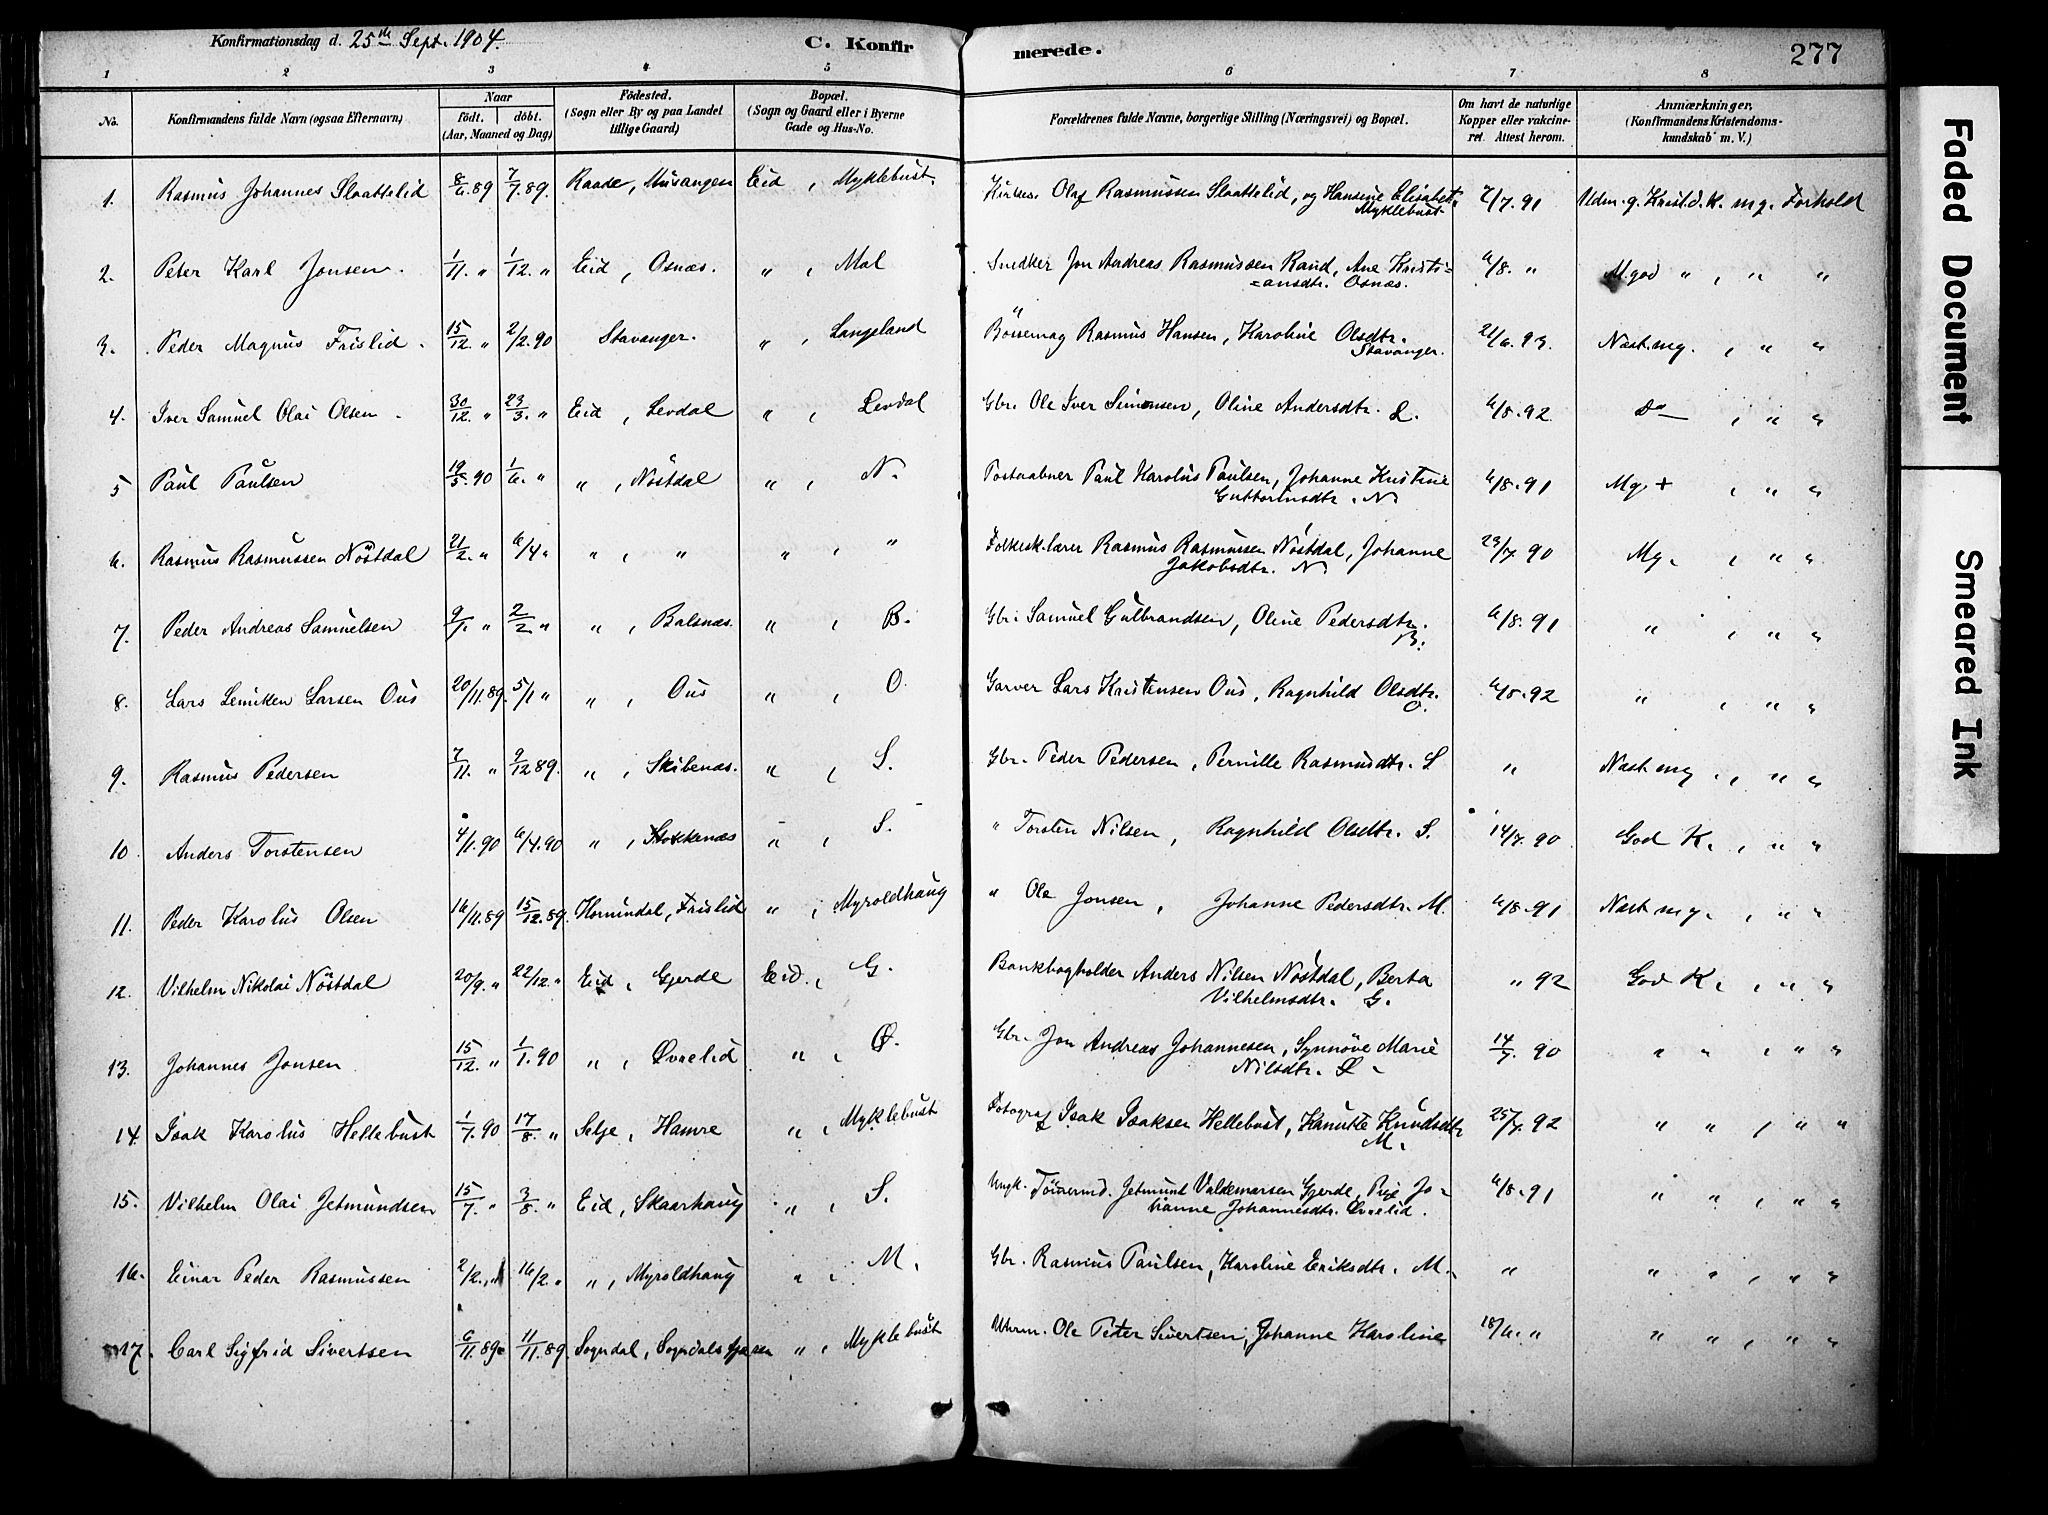 Konfirmationsdag d. 25th Sept. 1904. C. Konfir merede. 277
1 2 3 4 5 6 7 8
No. Konfirmandens fulde Navn (ogsaa Efternavn) Naar født. døbt. (Aar, Maaned og Dag) Födested. (Sogn eller By og paa Landet tillige Gaard) Bopæl. (Sogn og Gaard eller i Byerne Gade og Hus-No. Forældrenes fulde Navne, borgerlige Stilling (Næringsvei) og Bopæl. Om havt de naturlige Kopper eller vakcineret. Attest herom. Anmærkninger. (Konfirmandens Kristendomskundskab m. V.)
1. Rasmus Johannes Slaattelid 8/6.89 7/7.89. Raade, Eid, Myklebust. Olaf Rasmussen Slaattelid, og Hansine Elisabet Myklebust 2/7.91 Udm. g. Krist.d.K. mg. Forhold
2. Peter Karl Jonsen. 1/11. " 1/12. " Eid, Osnæs. ", Mol Snedker Jon Andreas Rasmussen Rand, Ane Kristi=ansdtr. Osnæs. 6/8. " M.god " , " "
3. Peder Magnus Frislid. 15/12. " 2/2.90 Stavanger. ", Langeland Rasmus Hansen, Karoline Olsdtr. Stavanger. 21/6.93. Næst.mg. , " "
4. Iver Samuel Olai Olsen. 30/12. " 23/3. " Eid, Levdal ", Levdal Gbr. Ole Iver Simonsen, Oline Andersdtr. L. 6/8.92. do , " "
5 Paul Paulsen 19/5.90 1/6. " ", Nöstdal ", N. Postaabner Paul Karolus Paulsen, Johanne Kristine Guttormsdtr. N 6/8.91 Mg. + , " "
6. Rasmus Rasmussen Nöstdal 21/2. " 6/4 " ", " ", " Folkesk.lærer Rasmus Rasmussen Nöstdal, Johanne Jakobsdtr. N 23/7.90 Mg. , " "
7. Peder Andreas Samuelsen 9/1. " 2/2. " ", Balsnæs. ", B. Gbr. Samuel Gulbrandsen, Oline Pedersdtr. B. 6/8.91 " , " "
8. Lars Larsen Ous 20/11.89. 5/1 " ", Ous ", O. Garver Lars Kristensen Ous, Ragnhild Olsdtr. O. 6/8.92 " , " "
9. Rasmus Pedersen 7/11. " 9/12 89. ", Skibenæs. ", S. Gbr. Peder Pedersen, Pernille Rasmusdtr. S " Næst mg. , " "
10. Anders Torstensen 4/1.90 6/4.90 ", Stokkenæs ", S. " Torsten Nilsen, Ragnhild Olsdtr. S. 14/7.90 God K. , " "
11. Peder Karolus Olsen 16/11.89 15/12.89. Hornindal, Frislid ", Myroldhaug " Ole Jonsen, Johanne Pedersdtr. M. 6/8.91 Næst mg. , " "
12. Vilhelm Nikolai Nöstdal 20/9. " 22/12. " Eid, Gjerde Eid., G. Bankbogholder Anders Nilsen Nöstdal, Berta Vilhelmsdtr. G. " 92 God K. , " "
13. Johannes Jonsen 15/12. " 1/1.90 ", Øvrelid ", Ø. Gbr. Jon Andreas Johannesen, Synnöve Marie Nilsdtr. Ø. 14/7.90 " " , " "
14. Isak Karolus Hellebust 1/7.90 17/8. " Selje, Hamre ", Myklebust Fotograf Isak Isaksen Hellebust, Kanutte Knudsdtr M. 25/7.92 " " , " "
15. Vilhelm Olai Jetmundsen 15/7. " 3/8. " Eid, Skaarhaug ", S. Ungk. Tömrermd. Jetmund Valdemarsen Gjerde, Pige Johanne Johannesdtr. Øvrelid. 6/8.91 " " , " "
16. Einar Peder Rasmussen 2/2. " 16/2 " ", Myroldhaug ", M. Gbr. Rasmus Paulsen, Karoline Eriksdtr. M. " " " , " "
17. Carl Sigfrid Sivertsen 6/11.89. 11/11.89. Sogndal, Sogndalsfjæren ", Myklebust Uhrm. Ole Peter Sivertsen, Johanne Karoline 18/6. " " " , " "
Faded Document
Smeared Ink